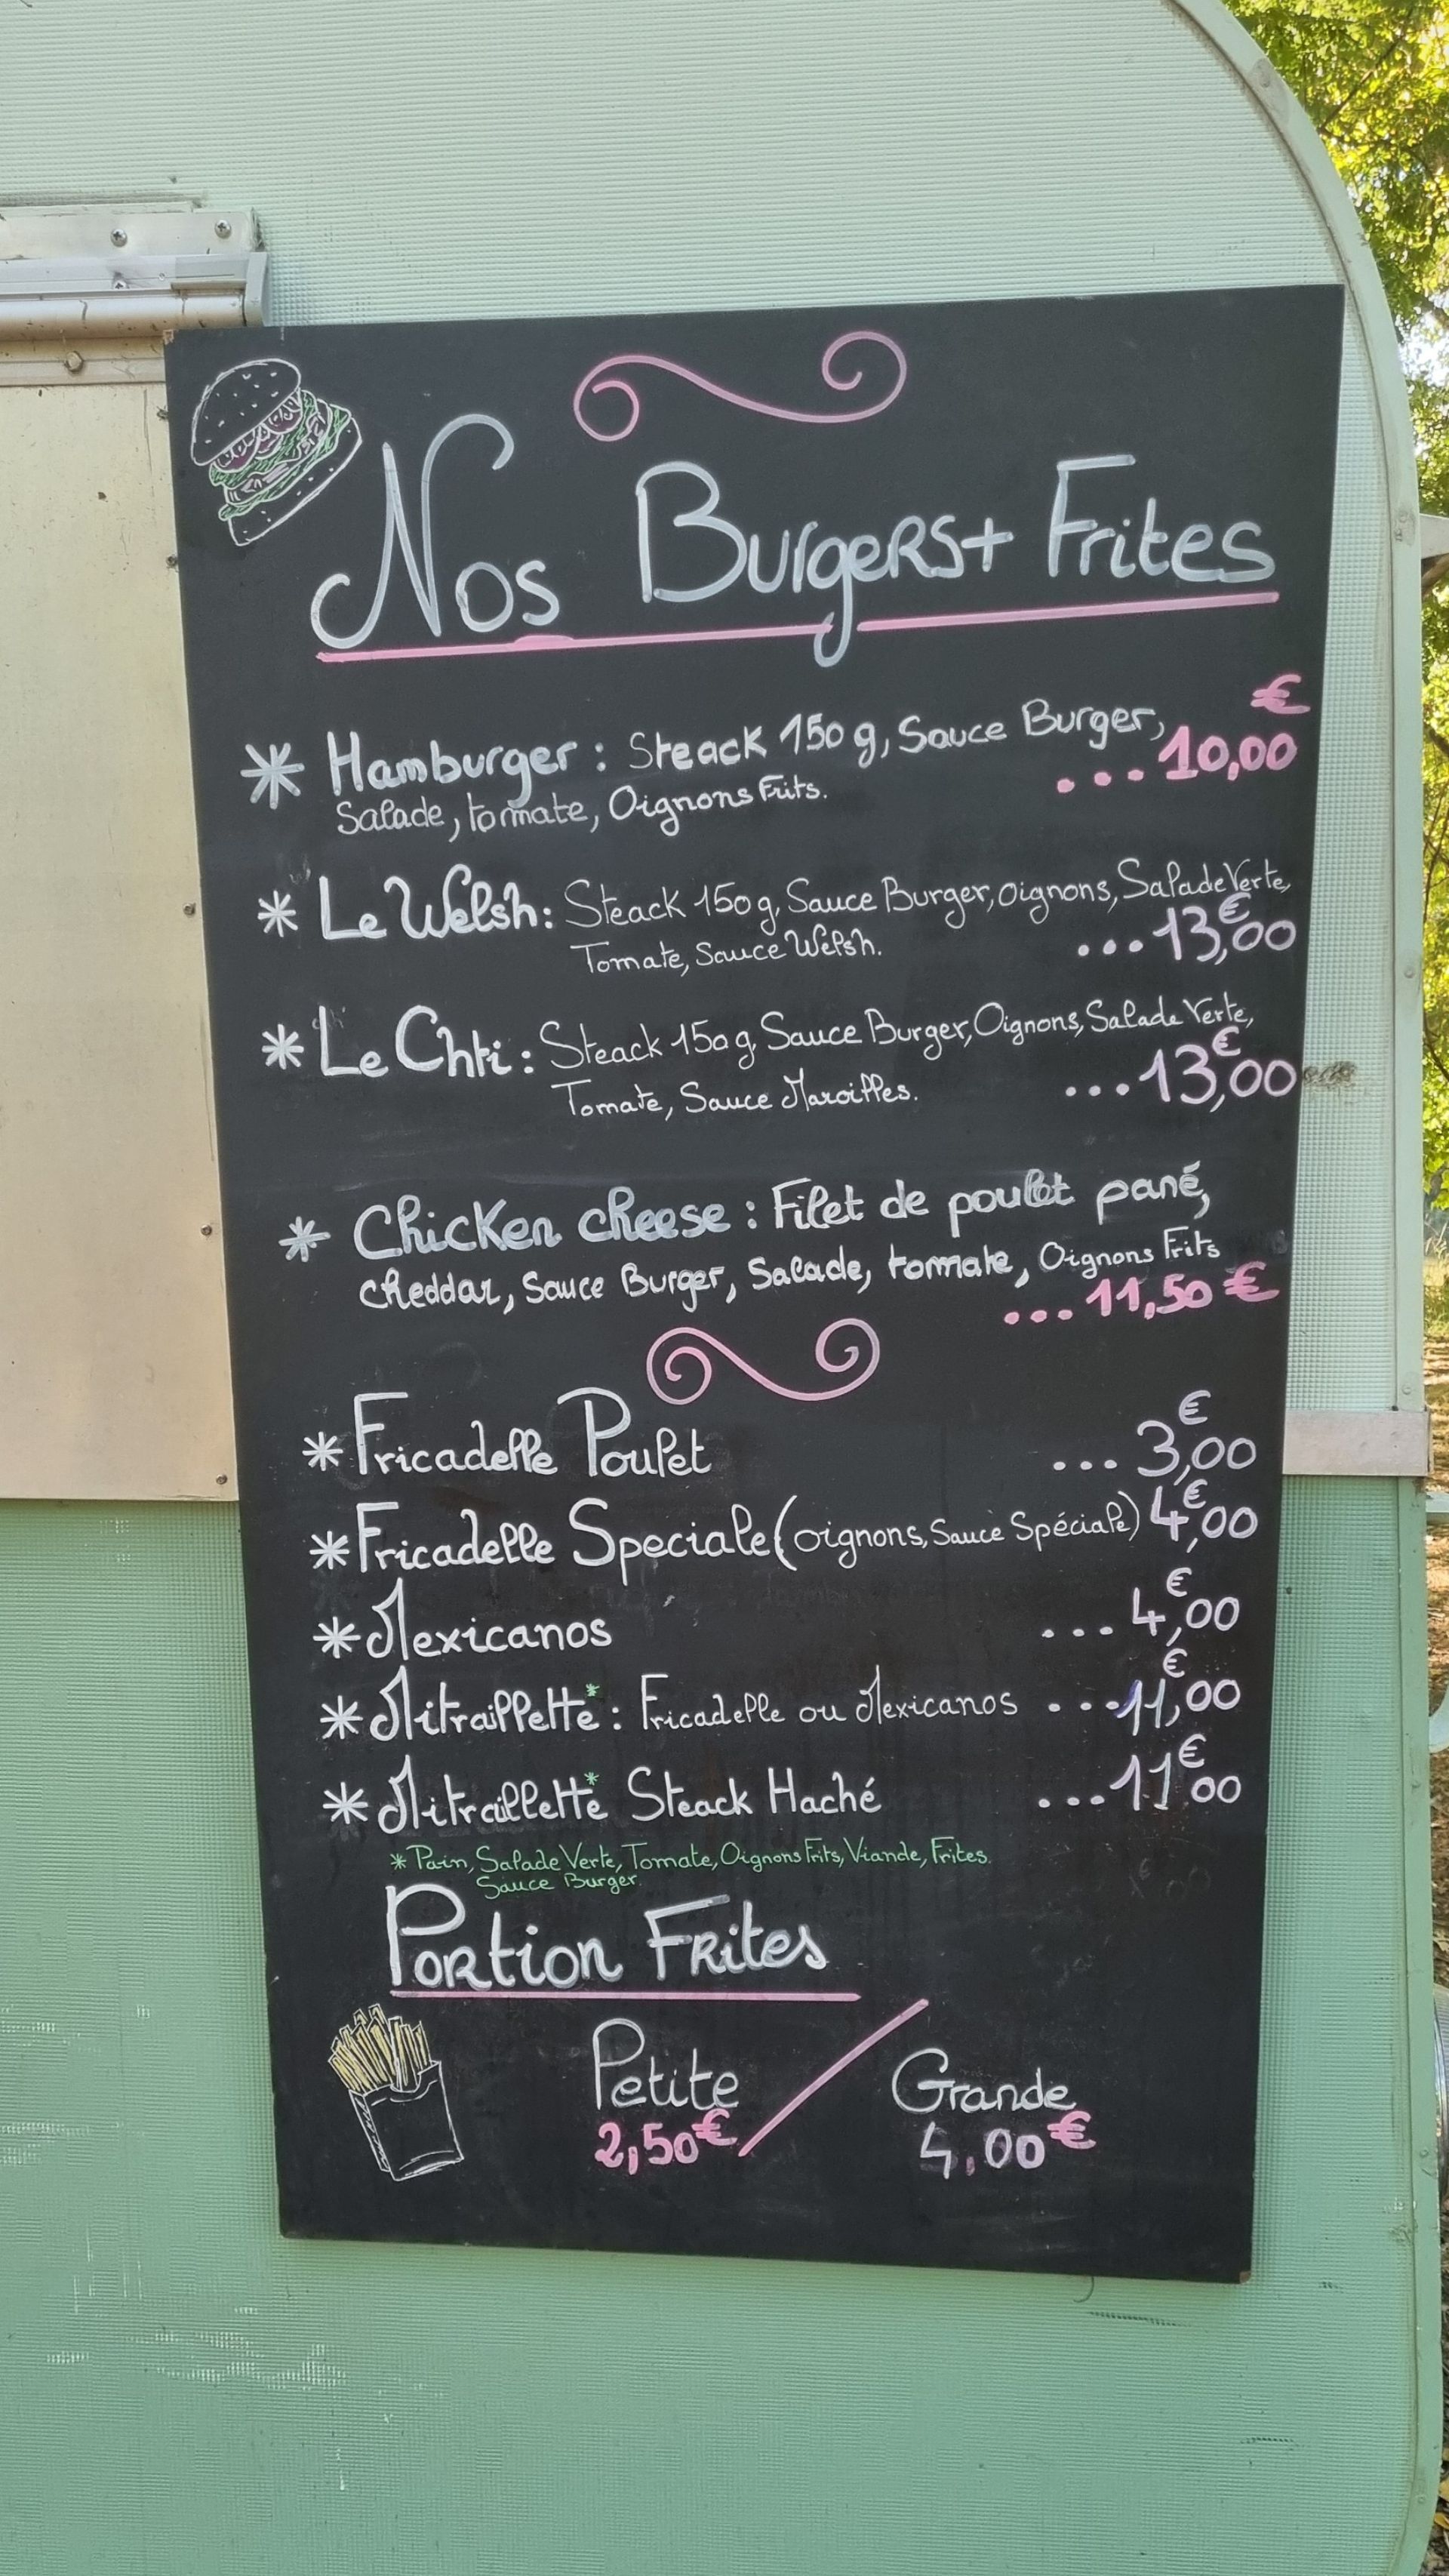 Nos Burgers + Frites
* Hamburger : Steack 150 g, Sauce Burger,
Salade, tomate, Oignons Frits. ...10,00 €
* Le Welsh : Steack 150 g, Sauce Burger, oignons, Salade Verte,
Tomate, Sauce Welsh. ...13,00 €
* Le Chti : Steack 150 g, Sauce Burger, Oignons, Salade Verte,
Tomate, Sauce Maroilles. ...13,00 €
* Chicken cheese : Filet de poulet pané,
cheddar, Sauce Burger, Salade, tomate, Oignons Frits
...11,50 €
* Fricadelle Poulet ... 3,00 €
* Fricadelle Speciale (oignons, Sauce Spéciale) 4,00 €
* Mexicanos ... 4,00 €
* Mitraillette* : Fricadelle ou Mexicanos ...11,00 €
* Mitraillette* Steack Haché ...11 € 00
* Pain, Salade Verte, Tomate, Oignons Frits, Viande, Frites.
Sauce Burger.
Portion Frites
Petite / Grande
2,50 € 4,00 €